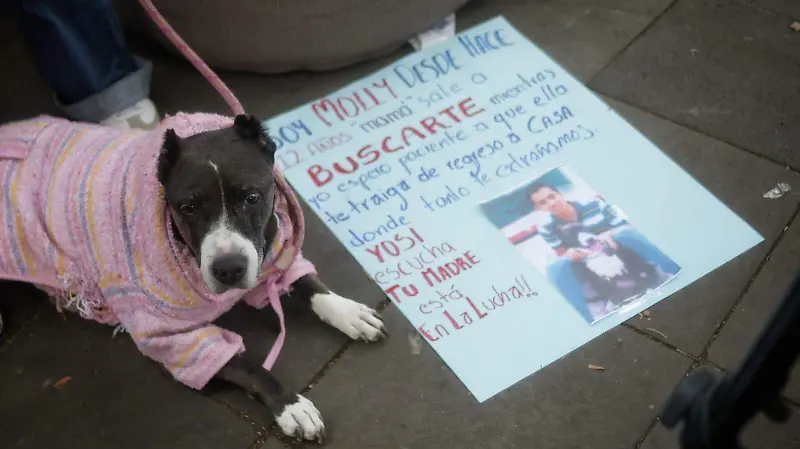 SOY MOLLY DESDE HACE
12 AÑOS "mamá" sale a
BUSCARTE mientras
yo espero paciente a que ella
te traiga de regreso a CASA
donde tanto te extrañamos.
YOSI
escucha
TU MADRE
está
En La Lucha!!